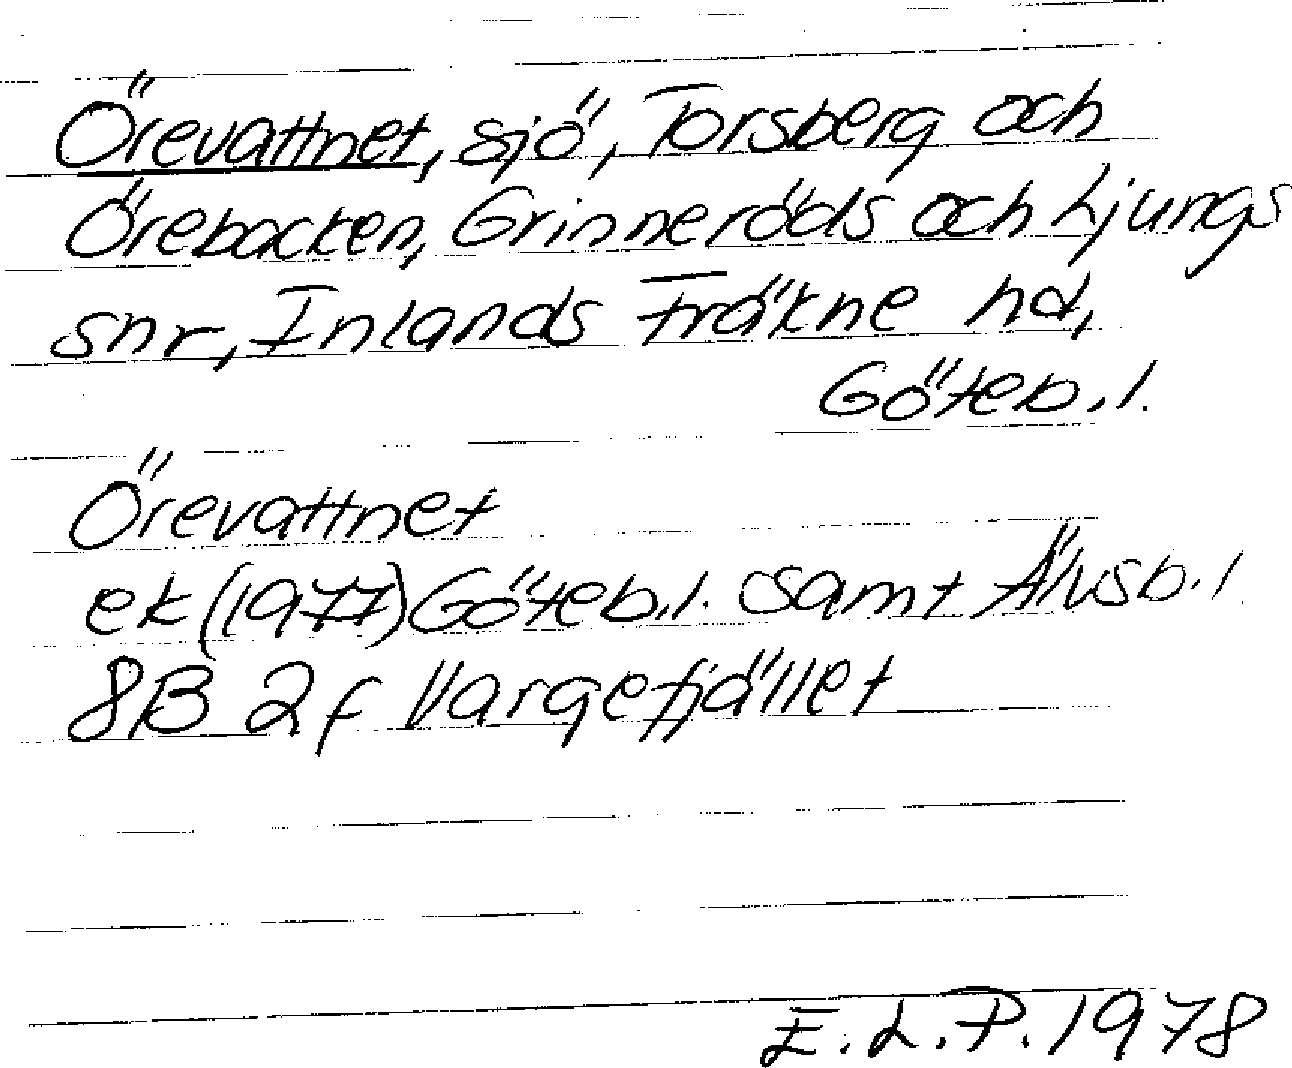 Örevattnet, sjö, Torsberg och
Örebacken, Grinneröds och Ljungs
snr, Inlands Fräkne hd,
Göteb. l.
Örevattnet
ek (1977) Göteb. l. samt Älvsb. l
8B 2f Vargefjället
E. L. P. 1978